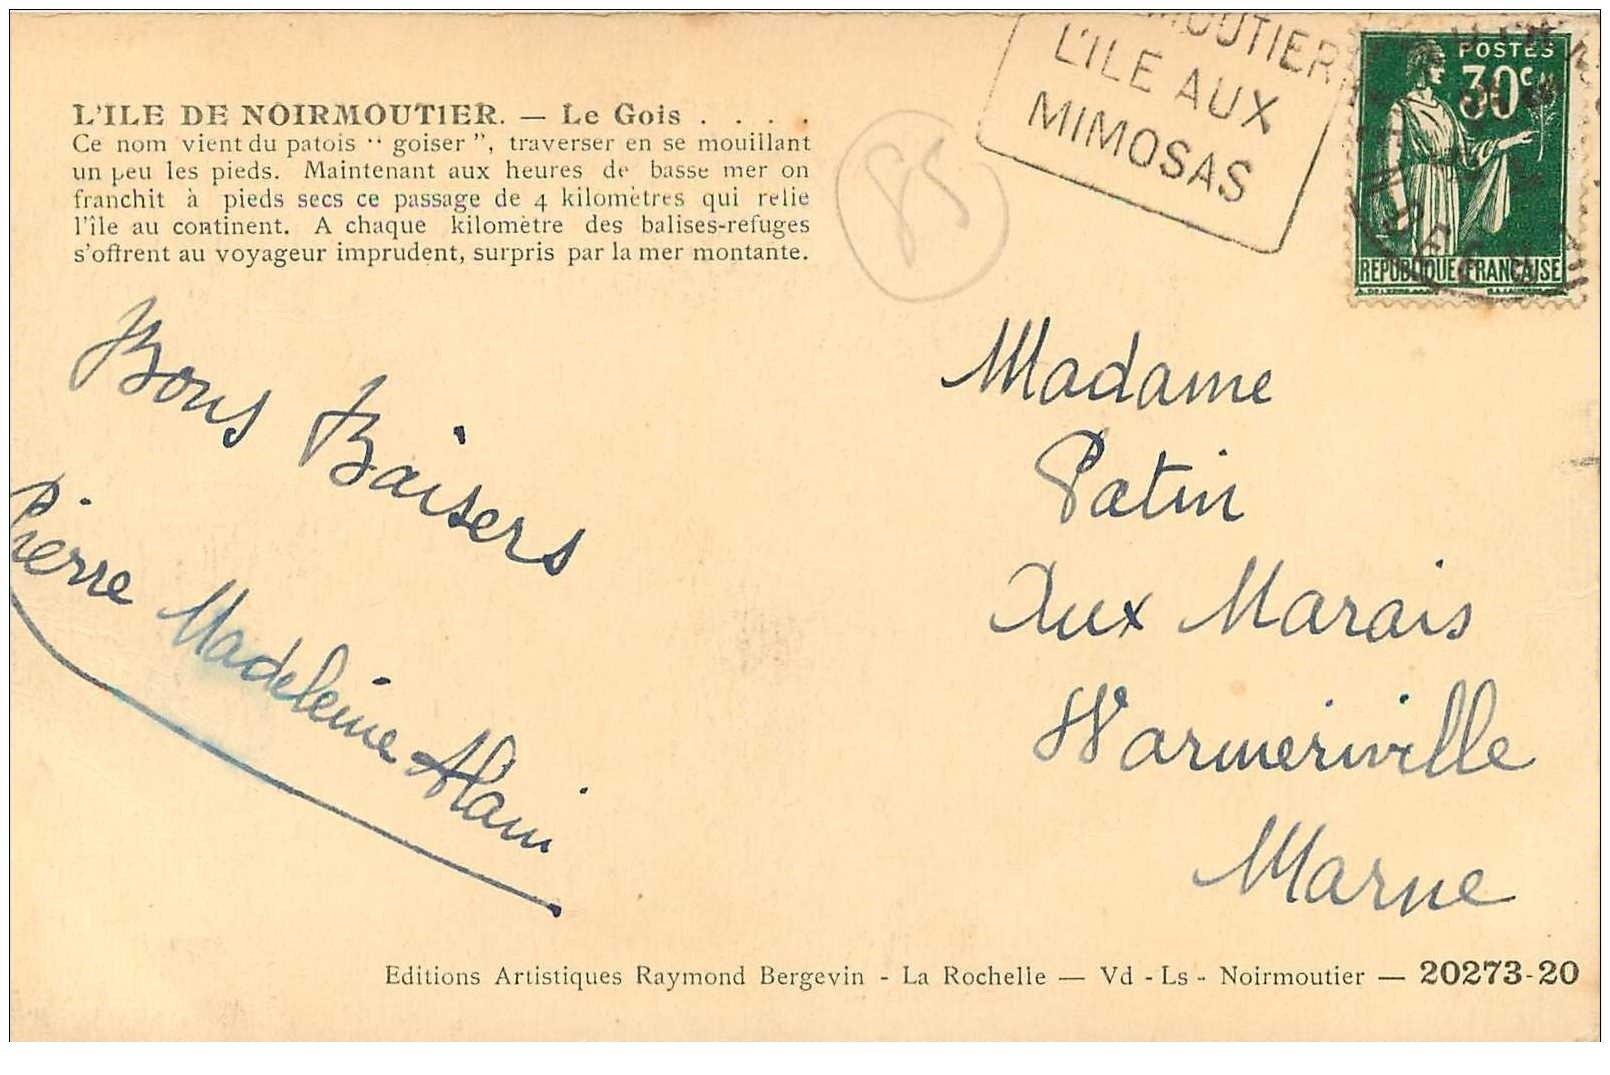 L'ILE DE NOIRMOUTIER. — Le Gois . . . .
Ce nom vient du patois " goiser ", traverser en se mouillant
un peu les pieds. Maintenant aux heures de basse mer on
franchit à pieds secs ce passage de 4 kilomètres qui relie
l'île au continent. A chaque kilomètre des balises-refuges
s'offrent au voyageur imprudent, surpris par la mer montante.
85
MOUTIER
L'ILE AUX
MIMOSAS
POSTES
30c
REPUBLIQUE FRANÇAISE
Bons Baisers
Pierre Madeleine Alain
Madame
Patin
Aux Marais
Warmeriville
Marne
Editions Artistiques Raymond Bergevin - La Rochelle — Vd - Ls - Noirmoutier — 20273-20